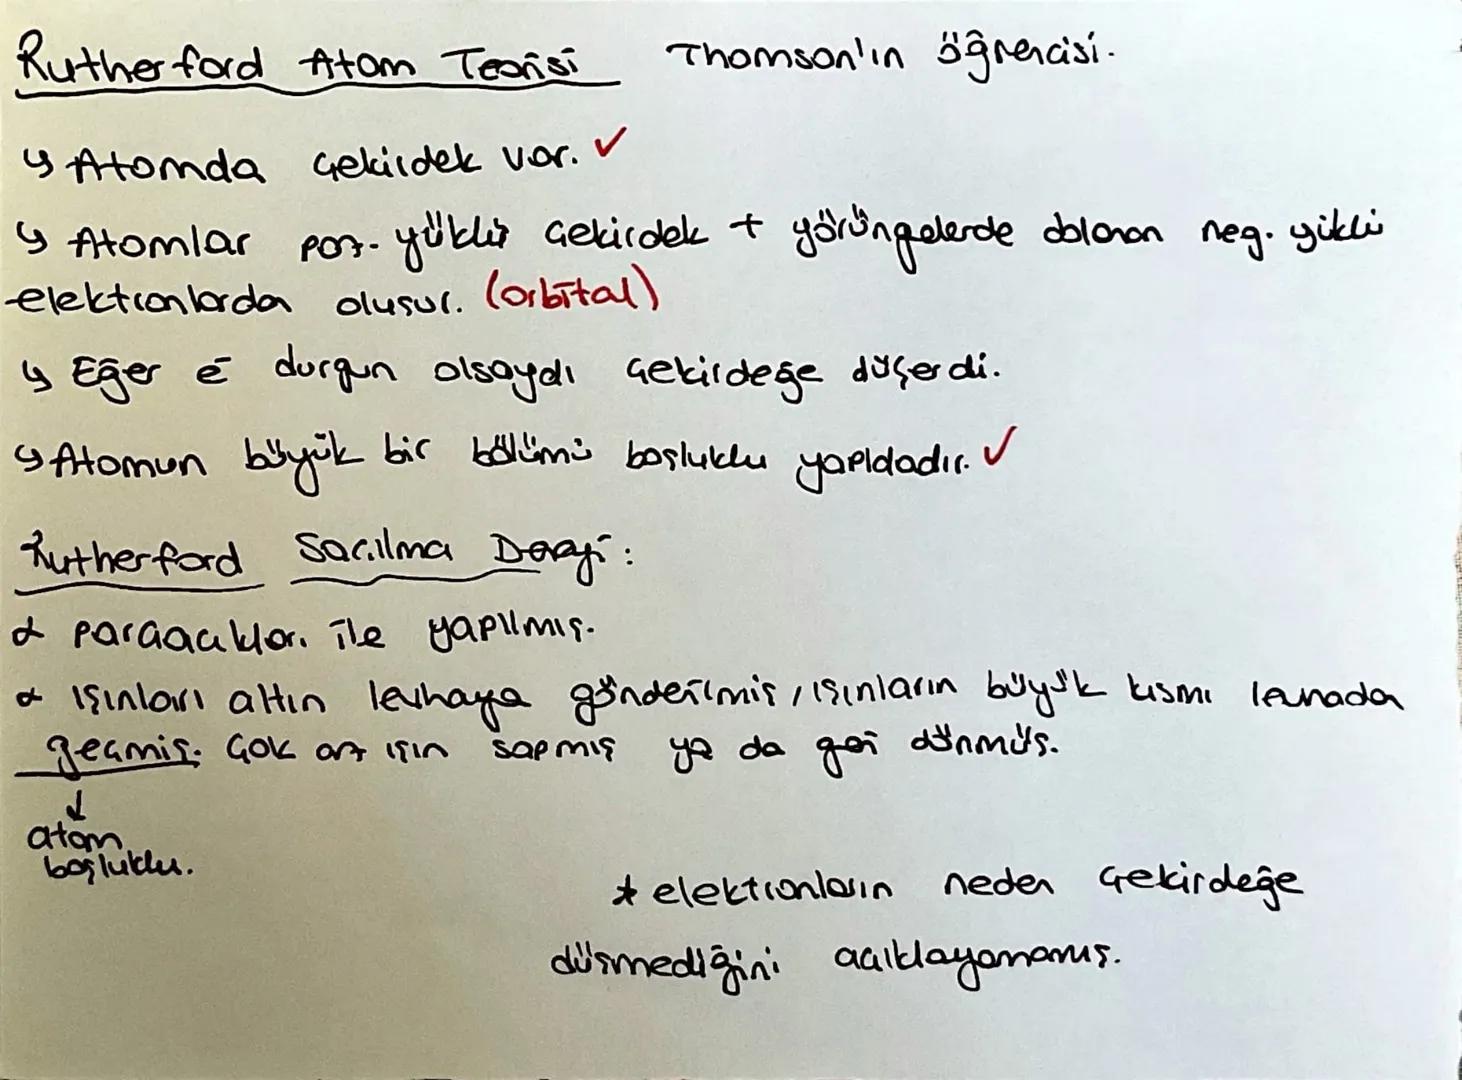 Rutherford Atom Teorisi Thomson'ın öğrencisi.
↳ Atomda çekirdek var. ✓
↳ Atomlar poz. yüklü çekirdek + yörüngelerde dolanan neg. yüklü
elektronlardan oluşur. (orbital)
↳ Eğer e̅ durgun olsaydı çekirdeğe düşerdi.
↳ Atomun büyük bir bölümü boşluklu yapıdadır. ✓
Rutherford Saçılma Deneyi:
α parçacıkları ile yapılmış.
α ışınları altın levhaya gönderilmiş, ışınların büyük kısmı levhada
geçmiş. Çok az ışın sapmış ya da geri dönmüş.
↓
atom
boşluklu.
* elektronların neden çekirdeğe
düşmediğini açıklayamamış.